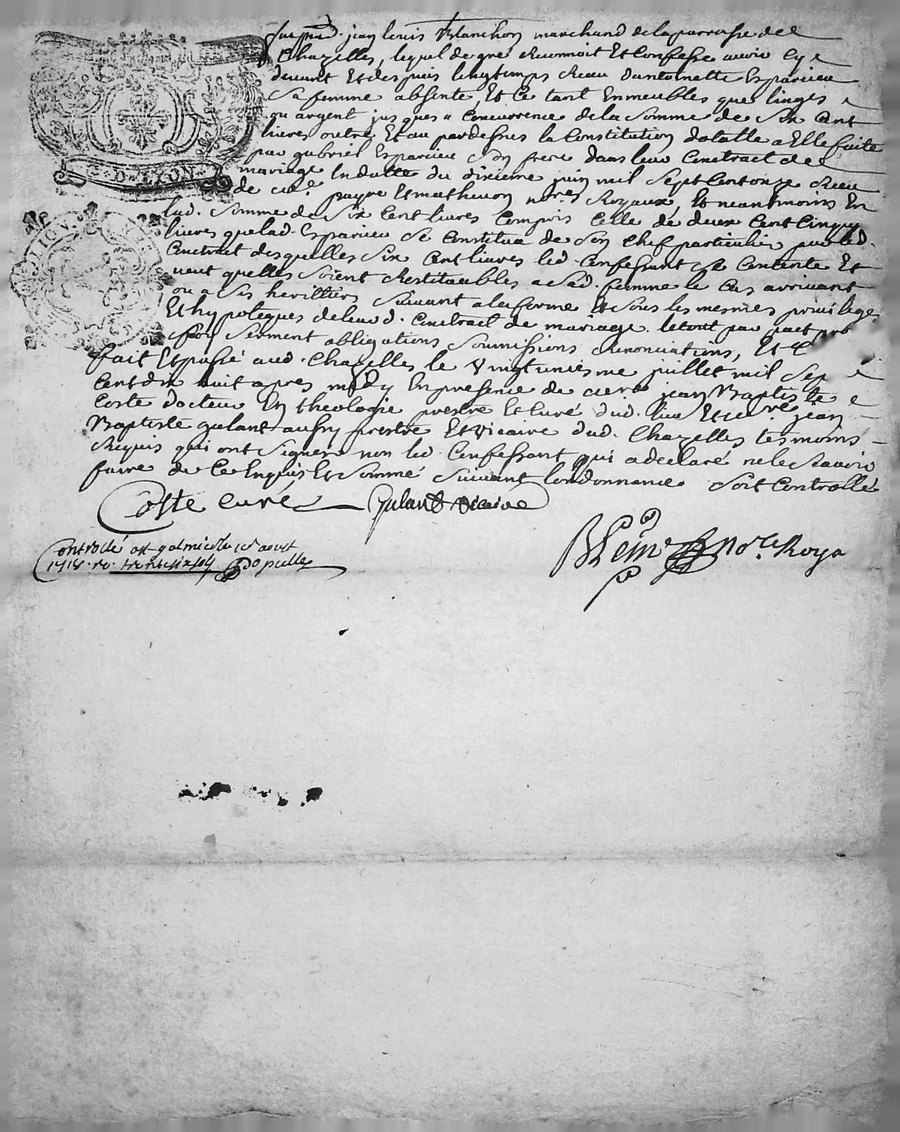 G. D. LYON
jean louis Blanchon marchand de la parroisse de
Chazelles, lequel de gré reconnoit Et Confesse avoir cy
devant Et des puis longtemps Receu d'antoinette Esparvieu
Sa femme absente, Et Ce tant En meubles que linges
ou argent jusques a Concurrence de la Somme de Six Cent
livres outre Et au par dessus la Constitution dotalle a Elle faite
par gabriel Esparvieu Son frere dans leur Contract de
mariage En datte du dixieme juin mil Sept Cent onze Receu
de payre Et mathevon no.res Royaux, Et neanmoins En
lad. Somme de Six Cent livres Compris Celle de deux Cent Cinq.
livres que lad. Esparvieu Se Constitua de Son Chef particulier par led.
Contract desquelles Six Cent livres led. Confessant Se Contente Et
veut quelles Soient Restituables a Sad. femme le Cas arrivant
ou a Ses heritiers Suivant a la forme Et Sous les mesmes privileges
Et hypoteques de leurd. Contract de mariage le tout par pact
foy Serment obligations Soumissions Renonciations, Et C
fait Et passé aud. Chazelles le Vingtunieme juillet mil Sept
Cent dix huit apres midy En presence de jean Baptiste
Coste docteur En theologie prestre Et Curé dud. lieu Et jean
Baptiste prestre Et Vicaire dud. Chazelles tesmoins
Requis qui ont Signés non led. Confessant qui a declaré ne le Scavoir
faire de Ce Enquis Et Sommé Suivant l'ordonnance Soit Controllé
Coste curé vicaire
no.re Royal
Controllé a St galmier le aoust
1718. Re.